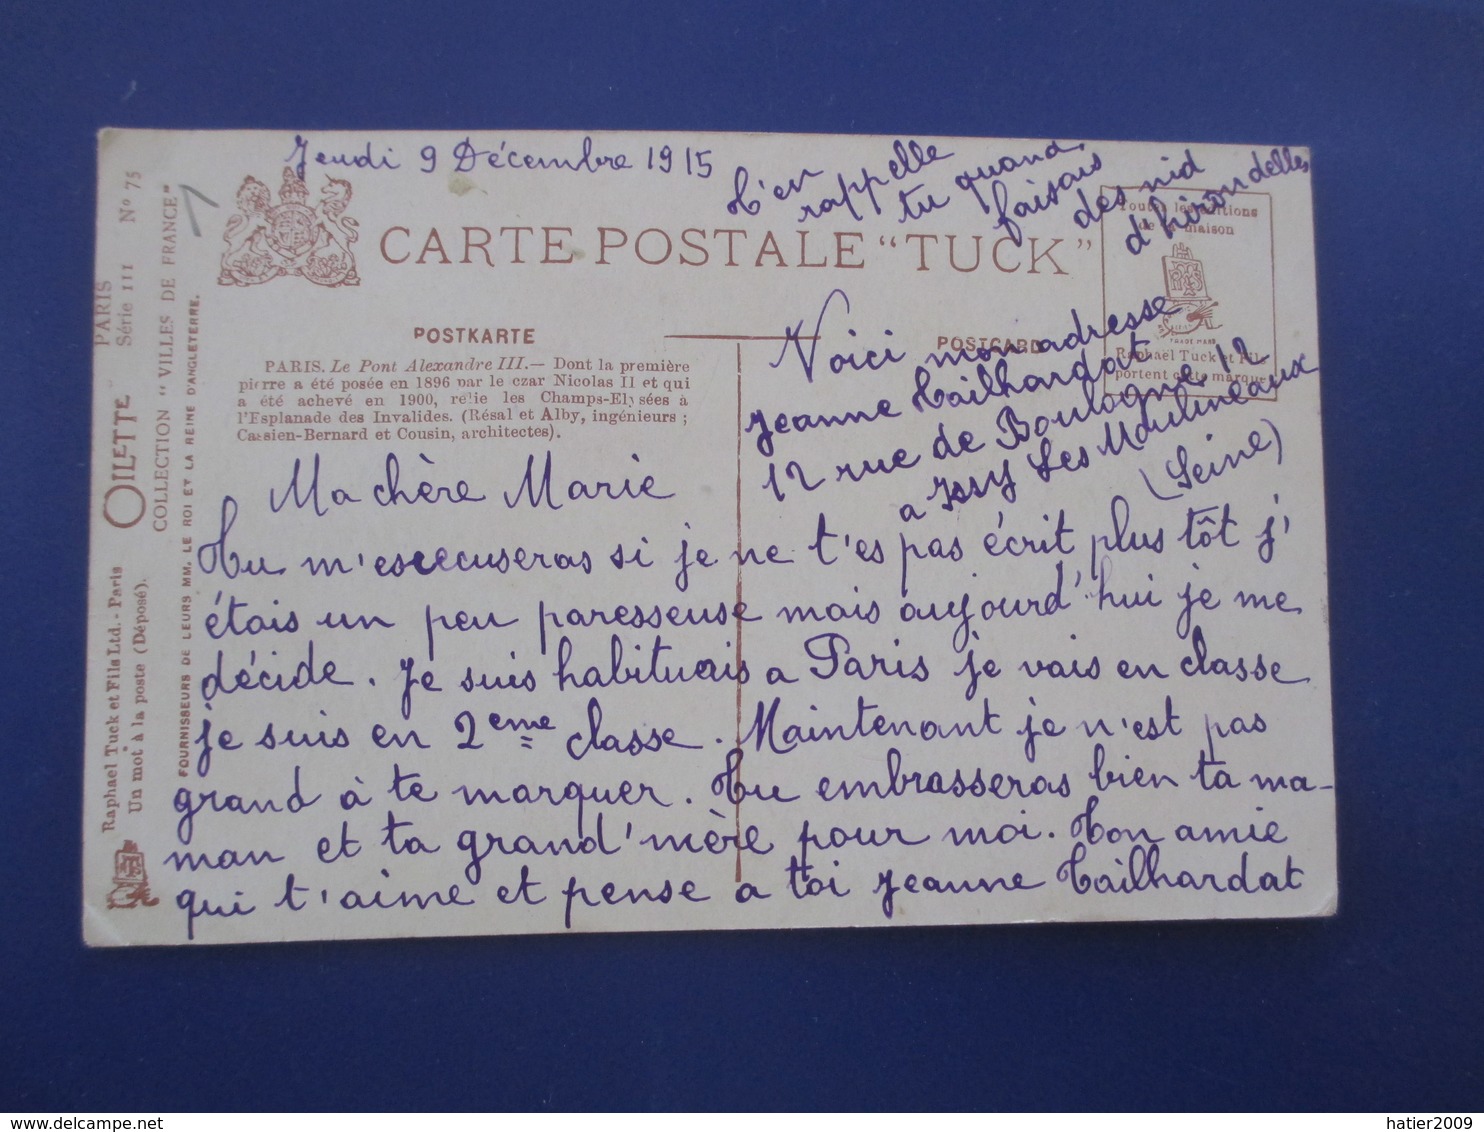 Jeudi 9 Décembre 1915
T'en
rappelle
tu quand
faisais
des nid
d'hirondelles
CARTE POSTALE "TUCK"
POSTKARTE
POSTCARD
PARIS. Le Pont Alexandre III.— Dont la première
pierre a été posée en 1896 par le czar Nicolas II et qui
a été achevé en 1900, relie les Champs-Elysées à
l'Esplanade des Invalides. (Résal et Alby, ingénieurs ;
Cassien-Bernard et Cousin, architectes).
Toutes les éditions
de la maison
TRADE MARK
Raphael Tuck et Fils
portent cette marque
Voici mon adresse
Jeanne Tailhardat
12 rue de Boulogne 12
a Issy Les Moulineaux
(Seine)
Ma chère Marie
Tu m'escecuseras si je ne t'es pas écrit plus tôt j'
étais un peu paresseuse mais aujourd'hui je me
décide. Je suis habituais a Paris je vais en classe
je suis en 2eme classe. Maintenant je n'est pas
grand à te marquer. Tu embrasseras bien ta ma-
man et ta grand'mère pour moi. Ton amie
qui t'aime et pense a toi Jeanne Tailhardat
PARIS
Série III N° 75
COLLECTION "VILLES DE FRANCE"
FOURNISSEURS DE LEURS MM. LE ROI ET LA REINE D'ANGLETERRE.
OILETTE
Raphael Tuck et Fils Ltd. - Paris
Un mot à la poste (Déposé).
delcampe.net
hatier2009